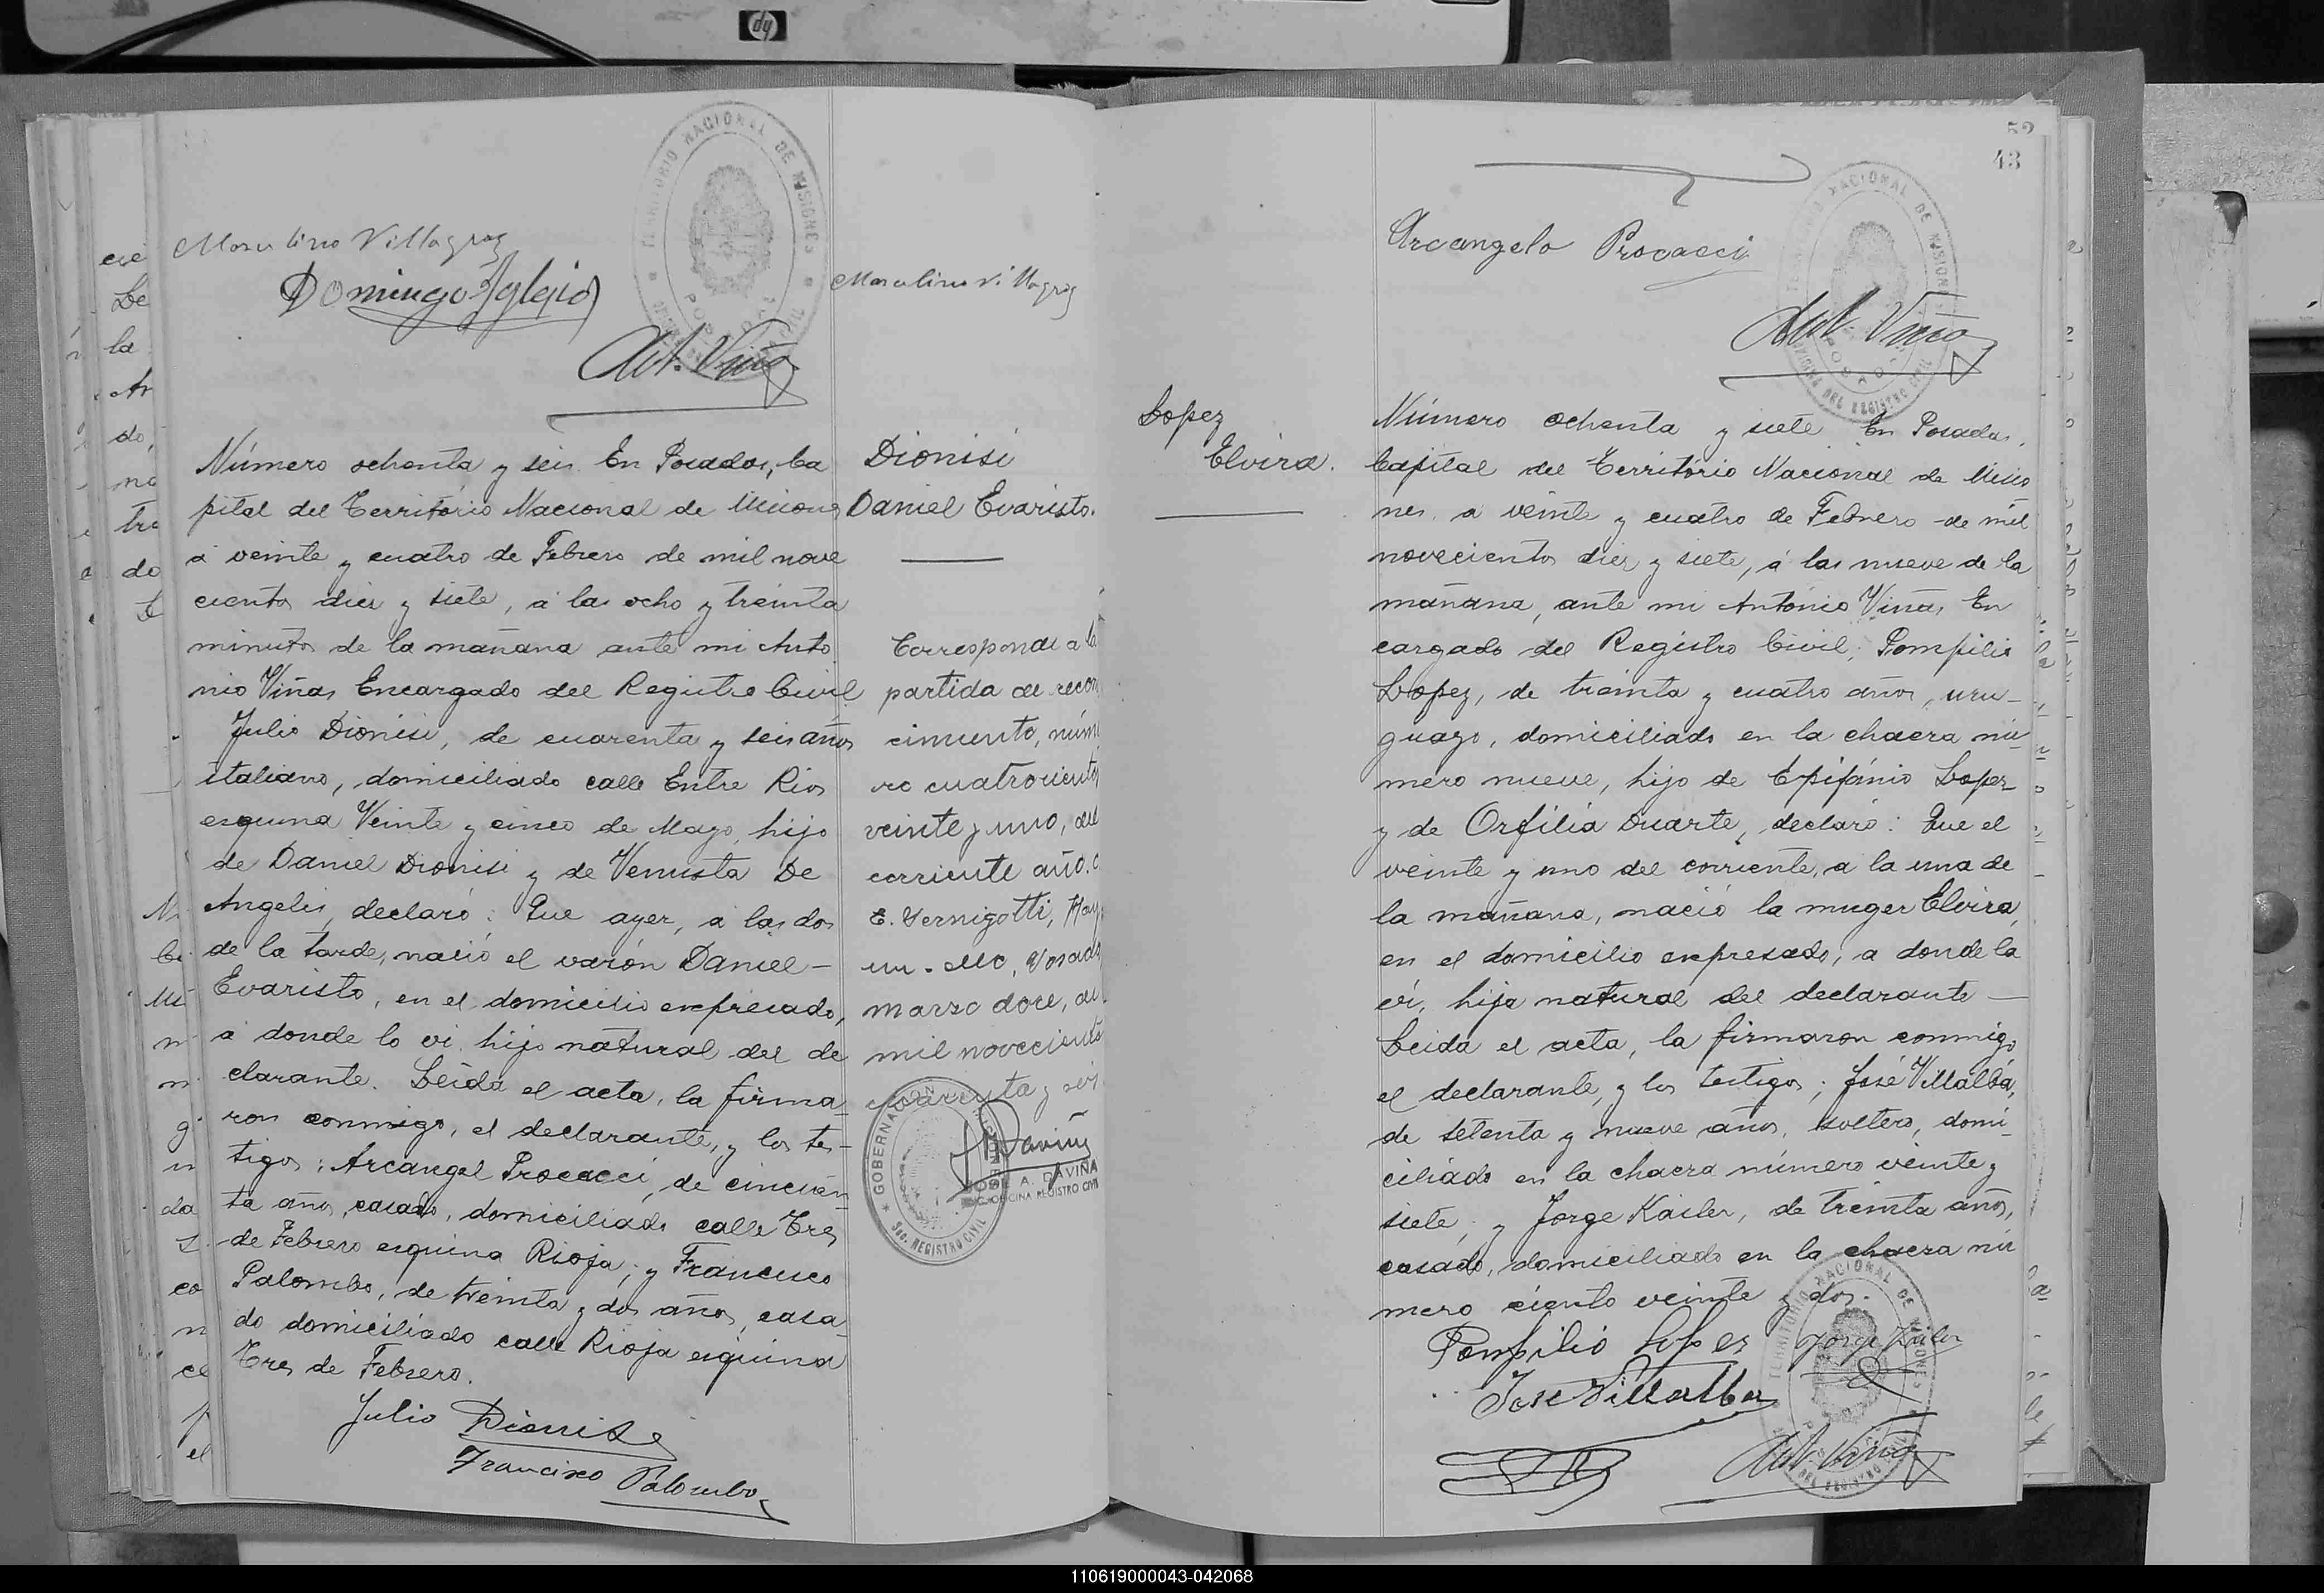 hp
TERRITORIO NACIONAL DE MISIONES
Marcelino Villagra
Domingo Iglesias
Ant. Viñas
Marcelino Villagra
Número ochenta y seis. En Posadas, Ca
pital del Territorio Nacional de Misiones
á veinte y cuatro de Febrero de mil nove
cientos diez y siete, á las ocho y treinta
minutos de la mañana ante mi Anto
nio Viñas Encargado del Registro Civil
Julio Dionisi, de cuarenta y seis años
italiano, domiciliado calle Entre Rios
esquina Veinte y cinco de Mayo, hijo
de Daniel Dionisi y de Venusta De
Angelis, declaró: Que ayer, á las dos
de la tarde, nació el varón Daniel –
Evaristo, en el domicilio expresado,
á donde lo vi. hijo natural del de
clarante. Leida el acta, la firma-
ron conmigo, el declarante, y los tes-
tigos; Arcangel Procacci, de cincuen-
ta años, casado, domiciliado calle Tres
de Febrero esquina Rioja; y Francisco
Palombo, de treinta y dos años, casa-
do domiciliado calle Rioja esquina
Tres de Febrero.
Julio Dionisi
Francisco Palombo
Dionisi
Daniel Evaristo.
Corresponde a la
partida de recon
cimiento, núme
ro cuatrocientos
veinte y uno, del
corriente año.
E. Vernigotti,
marzo doce, de
mil novecientos
cuarenta y seis
GOBERNACION
JOSE A. DAVIÑA
OFICINA REGISTRO CIVIL
Sec. REGISTRO CIVIL
52
43
NACIONAL DE MISIONES
Arcangelo Procacci
Ant. Viñas
POSADAS
OFICINA DEL REGISTRO CIVIL
Lopez
Elvira.
Número ochenta y siete En Posadas,
Capital del Territorio Nacional de Misio
nes, a veinte y cuatro de Febrero de mil
novecientos diez y siete, á las nueve de la
mañana, ante mi Antonio Viñas, En
cargado del Registro Civil; Pompilio
Lopez, de treinta y cuatro años, uru-
guayo, domiciliado en la chacra nú-
mero nueve, hijo de Epifánio Lopez
y de Orfilia Duarte, declaró: Que el
veinte y uno del corriente, a la una de
la mañana, nació la muger Elvira,
en el domicilio expresado, a donde la
vi, hija natural del declarante —
Leida el acta, la firmaron conmigo
el declarante, y los testigos; José Villalba,
de setenta y nueve años, soltero, domi-
ciliado en la chacra número veinte y
siete; y Jorge Kailer, de treinta años,
casado, domiciliado en la chacra nú
mero ciento veinte y dos.
Pompilio Lopez Jorge Kailer
Jose Villalba
Ant. Viñas
TERRITORIO NACIONAL DE MISIONES
110619000043-042068